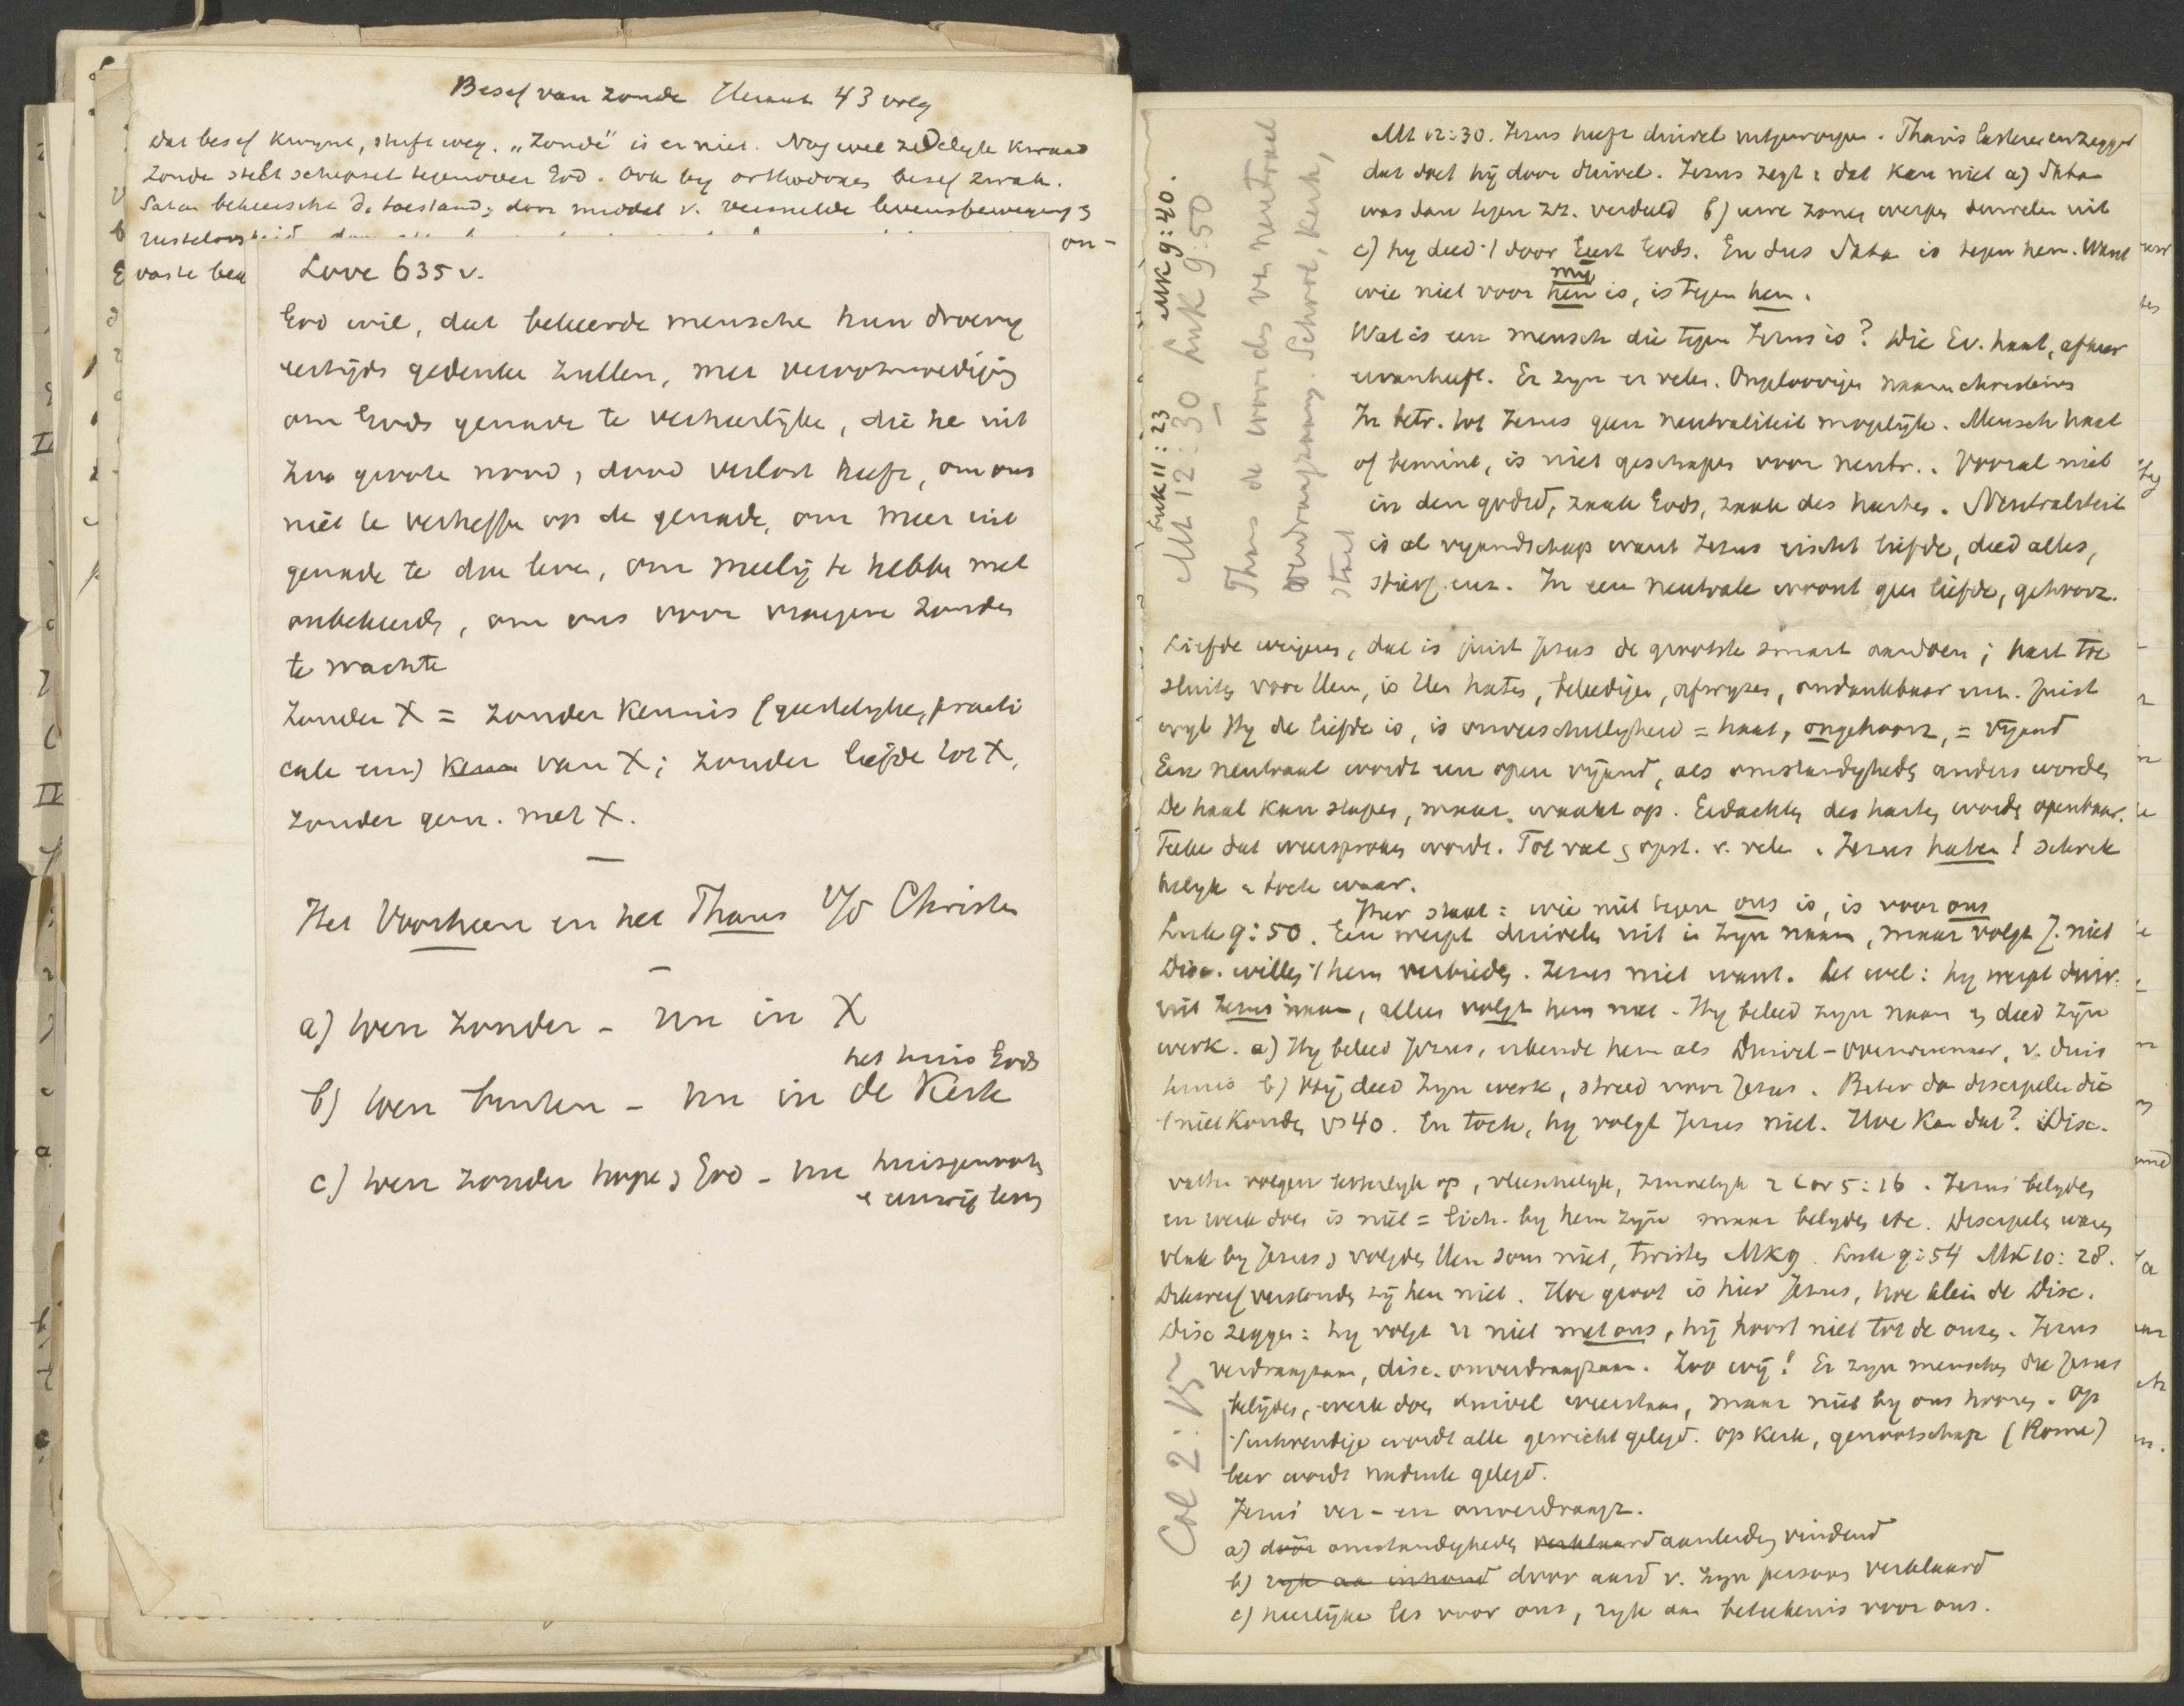 Besef van zonde Heraut 43 volg
Dat besef kwynt, slyft weg. „Zonde" is er niet. Nog wel zedelyk kwaad
Zonde stelt schepsel tegenover God. Ook by orthodoxen besef zwak.
Satan beheerscht d. toestand, door middel v. versnelde levensbeweging &
on-
vaste
Love 635 v.
God wil, dat bekeerde mensche hun droevig
eertijds gedenke zullen, met verootmoediging
om Gods genade te verheerlijke, die he uit
zoo groote nood, dood verlost heeft, om ons
niet te verheffe op de genade, om meer uit
genade te doe leve, om meelij te hebbe met
onbekeerde, om ons voor vroegere zonden
te wachte
Zonder X = zonder kennis (geestelyke, practi
cale enz) kenn van X; zonder liefde tot X,
zonder gem. met X.
—
Het Voorheen en het Thans v/d Christen
—
a) toen zonder - nu in X
het huis Gods
b) toen buiten - nu in de Kerk
c) toen zonder hope & God - nu huisgenooten
& eeuwig leven
Luk 11:23 Mk 9:40.
Mt 12:30 Luk 9:50
Thans de woorden van neutraal
verdraagzaam. School, Kerk,
staat
Mt 12:30. Jezus heeft duivel uitgeworpen. Phariz lasteren en zeggen
dat doet hij door duivel. Jezus zegt: dat kan niet a) Satan
was dan tegen zz. verdeeld b) uwe zonen werpen duivelen uit
c) hy deed 't door Geest Gods. En dus Satan is tegen hem. Want
my
wie niet voor hem is, is tegen hem.
Wat is een mensch die tegen Jezus is? Die Ev. haat, afkeer
ervan heeft. Er zyn er velen. Ongeloovigen naamchristenen
In betr. tot Jezus geen neutraliteit mogelijk. Mensch haat
of bemint, is niet geschapen voor neutr.. Vooral niet
in den godsd, zaak Gods, zaak des harten. Neutraliteit
is al vyandschap want Jezus eischt liefde, deed alles,
stierf enz. In een neutrale woont geen liefde, gehoorz.
Liefde weigeren, dat is juist Jezus de grootste smart aandoen; hart toe
sluiten voor Hem, is Hem haten, beleedigen, afwyzen, ondankbaar enz. Juist
wyl Hy de liefde is, is onverschilligheid = haat, ongehoorz, = vyand
Een neutraal wordt een open vijand, als omstandigheden anders worden
De haat kan slapen, maar waakt op. Gedachten des harten worden openbaar.
Teeken dat weersproken wordt. Tot val & opst. v. velen. Jezus haten! Schrik
kelyk & toch waar.
Hier staat: wie niet tegen ons is, is voor ons
Luk 9:50. Een werpt duivelen uit in Zyn naam, maar volgt J. niet
Disc. willen 't hem verbieden. Jezus niet want. Let wel: hy werpt duiv.
uit Jezus' naam, alleen volgt hem niet. Hy beleed zyn naam & deed zijn
werk. a) Hy beleed Jezus, erkende hem als Duivel-overwinnaar, v. duis
ternis b) Hij deed zyn werk, streed voor Jezus. Beter dan discipelen die
't niet konden vs 40. En toch, hy volgt Jezus niet. Hoe kan dat? Disc.
vatten volgen letterlyk op, vleeschelyk, zinnelyk 2 Cor 5:16. Jezus belyden
en werk doen is niet = lich. by hem zijn maar belyden etc. Discipelen waren
vlak by Jezus & volgden Hem soms niet, twisten Mk 9. Luk 9:54 Mt 10:28.
Dikwerf verstonden zij hem niet. Hoe groot is hier Jezus, hoe klein de Disc.
Disc zeggen: hy volgt U niet met ons, hij hoort niet tot de onzen. Jezus
verdraagzaam, disc. onverdraagzaam. Zoo wij! Er zyn menschen die Jezus
belijden, werk doen duivel weerstaan, maar niet by ons hooren. Op
't uitwendige wordt alle gewicht gelegd. Op Kerk, genootschap (Rome)
leer wordt nadruk gelegd.
Col 2:15
Jezus' ver- en onverdraagz.
a) door omstandigheden verklaard aanleiding vindend
b) ryk aan inhoud door aard v. zyn persoon verklaard
c) heerlijke les voor ons, ryk aan beteekenis voor ons.